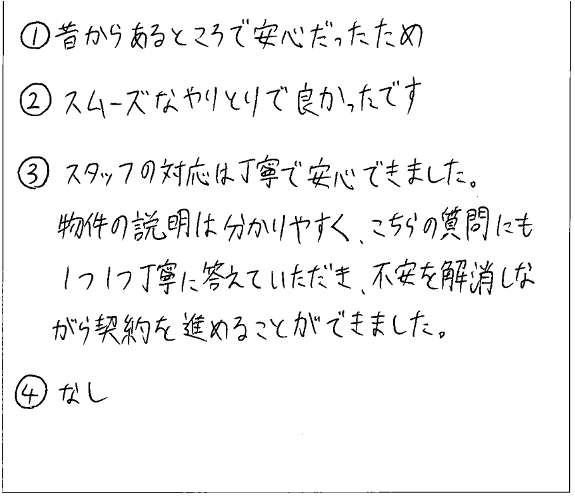 ①昔からあるところで安心だったため
②スムーズなやりとりで良かったです
③スタッフの対応は丁寧で安心できました。
物件の説明は分かりやすく、こちらの質問にも
1つ1つ丁寧に答えていただき、不安を解消しな
がら契約を進めることができました。
④なし